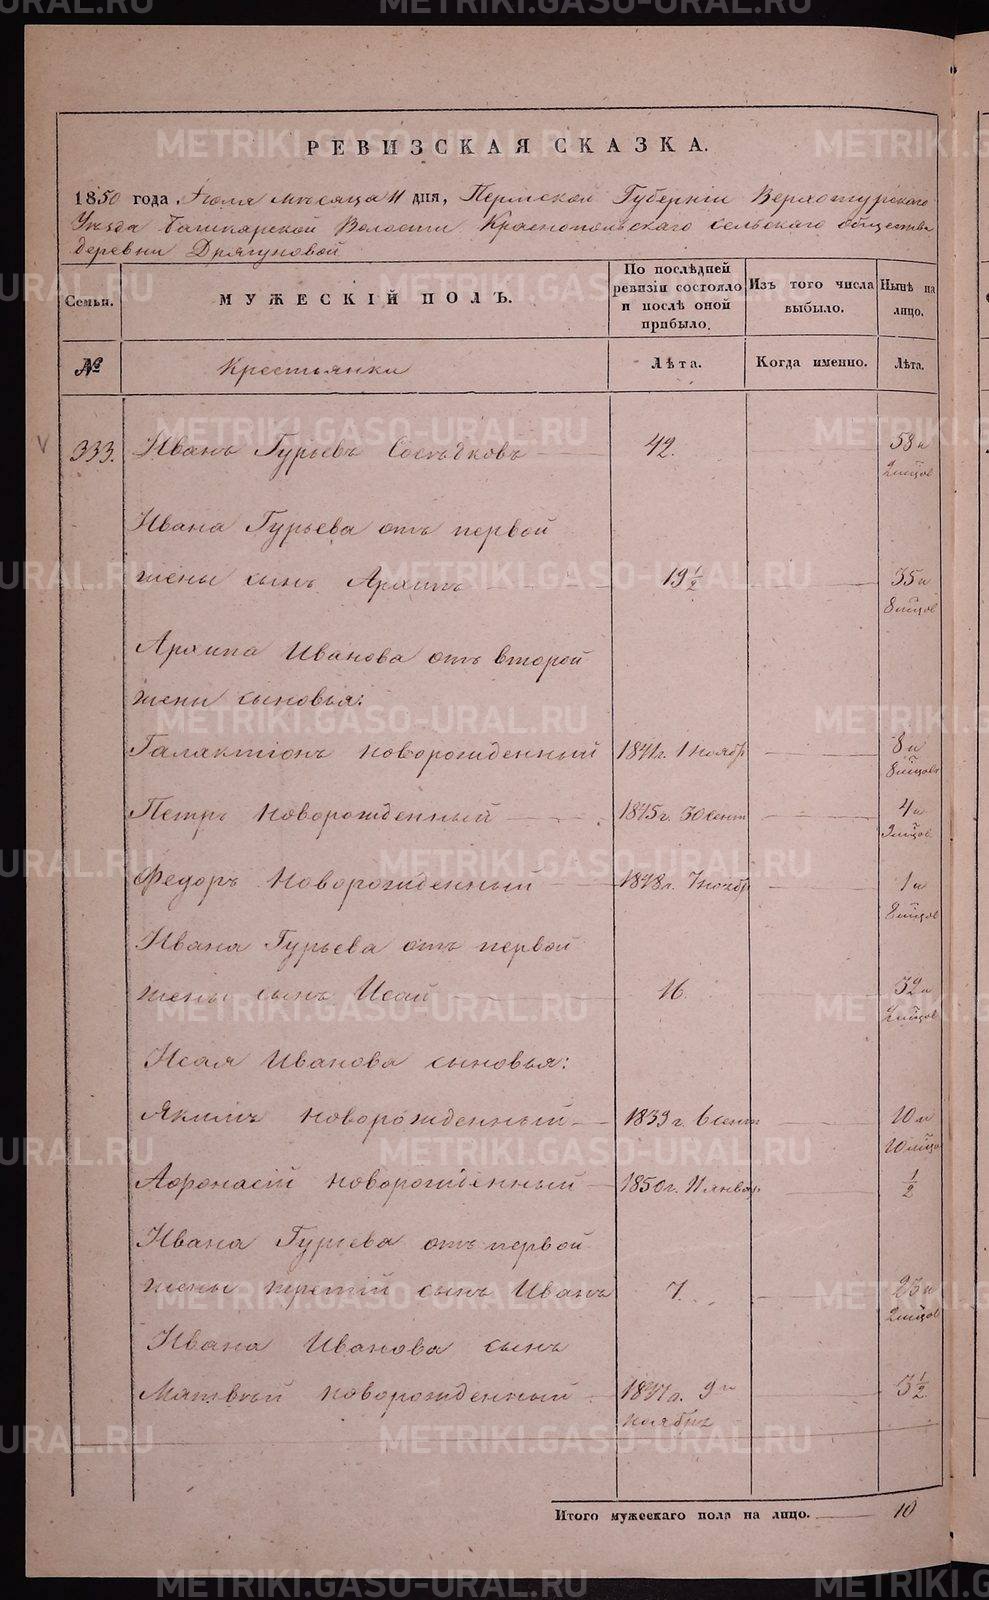 РЕВИЗСКАЯ СКАЗКА.
1850 года Июля месяца 11 дня, Пермской Губерніи Верхотурскаго
Уезда Башкарской Волости Краснопольскаго сельскаго общества
деревни Дрягуновой
Семьи. МУЖЕСКІЙ ПОЛЪ. По послѣдней ревизіи состояло и послѣ оной прибыло. Изъ того числа выбыло. Нынѣ на лицо.
№ Крестьянки Лѣта. Когда именно. Лѣта.
333. Иванъ Гурьевъ Сосѣдковъ 42. 58 и
2 мѣсцов
Ивана Гурьева отъ первой
жены сынъ Архипъ 19 1/2 35 и
8 мѣсцов
Архипа Иванова отъ второй
жены сыновья:
Галактіонъ новорожденный 1841г. 1 ноябр 8 и
8 мѣсцов
Петръ новорожденный 1845г. 30 сент 4 и
9 мѣсцов
Федоръ новорожденный 1848г. 7 ноябр 1 и
8 мѣсцов
Ивана Гурьева отъ первой
жены сынъ Исай 16. 32 и
2 мѣсцов
Исая Иванова сыновья:
Якимъ новорожденный 1839г. 6 сент 10 и
10 мѣсцо
Афонасій новорожденный 1850г. 11 январ 1/2
Ивана Гурьева отъ первой
жены третій сынъ Иванъ 7. 23 и
2 мѣсцов
Ивана Иванова сынъ
Матвѣй новорожденный 1847г. 9го 3 1/2
ноября
Итого мужескаго пола на лицо. 10
METRIKI.GASO-URAL.RU